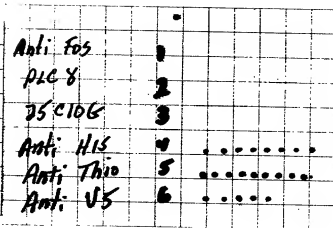 Anti Fos 1
PLC γ 2
D5 C10G 3
Anti HIS 4 . . . . . . . .
Anti Thio 5 . . . . . . . . . .
Anti V5 6 . . . . .